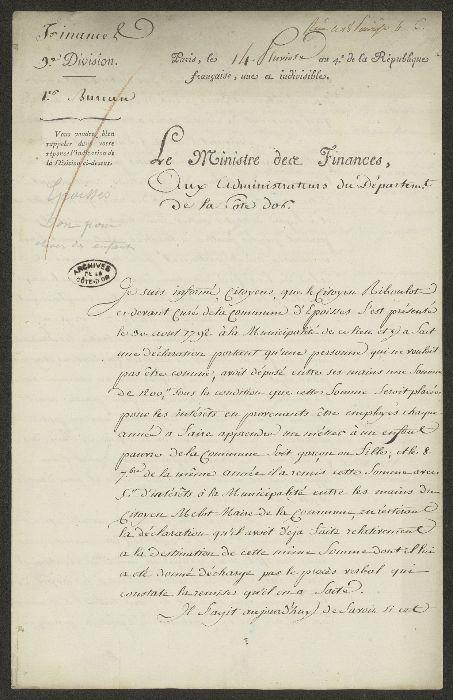 Finances
3e Division.
1er Bureau
Vous voudrez bien
rappeler dans votre
réponse l'indication de
la Division ci-dessus.
Paris, le 14 Pluviose an 4e. de la République
française, une et indivisible.
Le Ministre des Finances,
Aux Administrateurs du Départemt.
de la Côte d'or.
Epoisses
Don pour
des enfants
ARCHIVES
DE LA
CÔTE-D'OR
Je suis informé, Citoyens, que le Citoyen Riboulot
ci-devant Curé de la Commune d'Epoisses s'est présenté
le 30 aout 1792. à la Municipalité de ce lieu et y a fait
une déclaration portant qu'une personne qui ne vouloit
pas être connue, avoit déposé entre ses mains une Somme
de 1200.tt Sous la condition que cette Somme seroit placée
pour les intérêts en provenants être employés chaque
année a faire apprendre un métier à un enfant
pauvre de la Commune soit garçon ou fille, et le 8
7.bre de la même année il a remis cette Somme avec
5.tt d'intérêts à la Municipalité entre les mains du
Citoyen Melot Maire de la Commune en réitérant
la déclaration qu'il avoit déja faite relativement
a la destination de cette même Somme dont il lui
a été donné décharge par le procès verbal qui
constate la remise qu'il en a faite.
Il s'agit aujourd'huy de savoir si cet